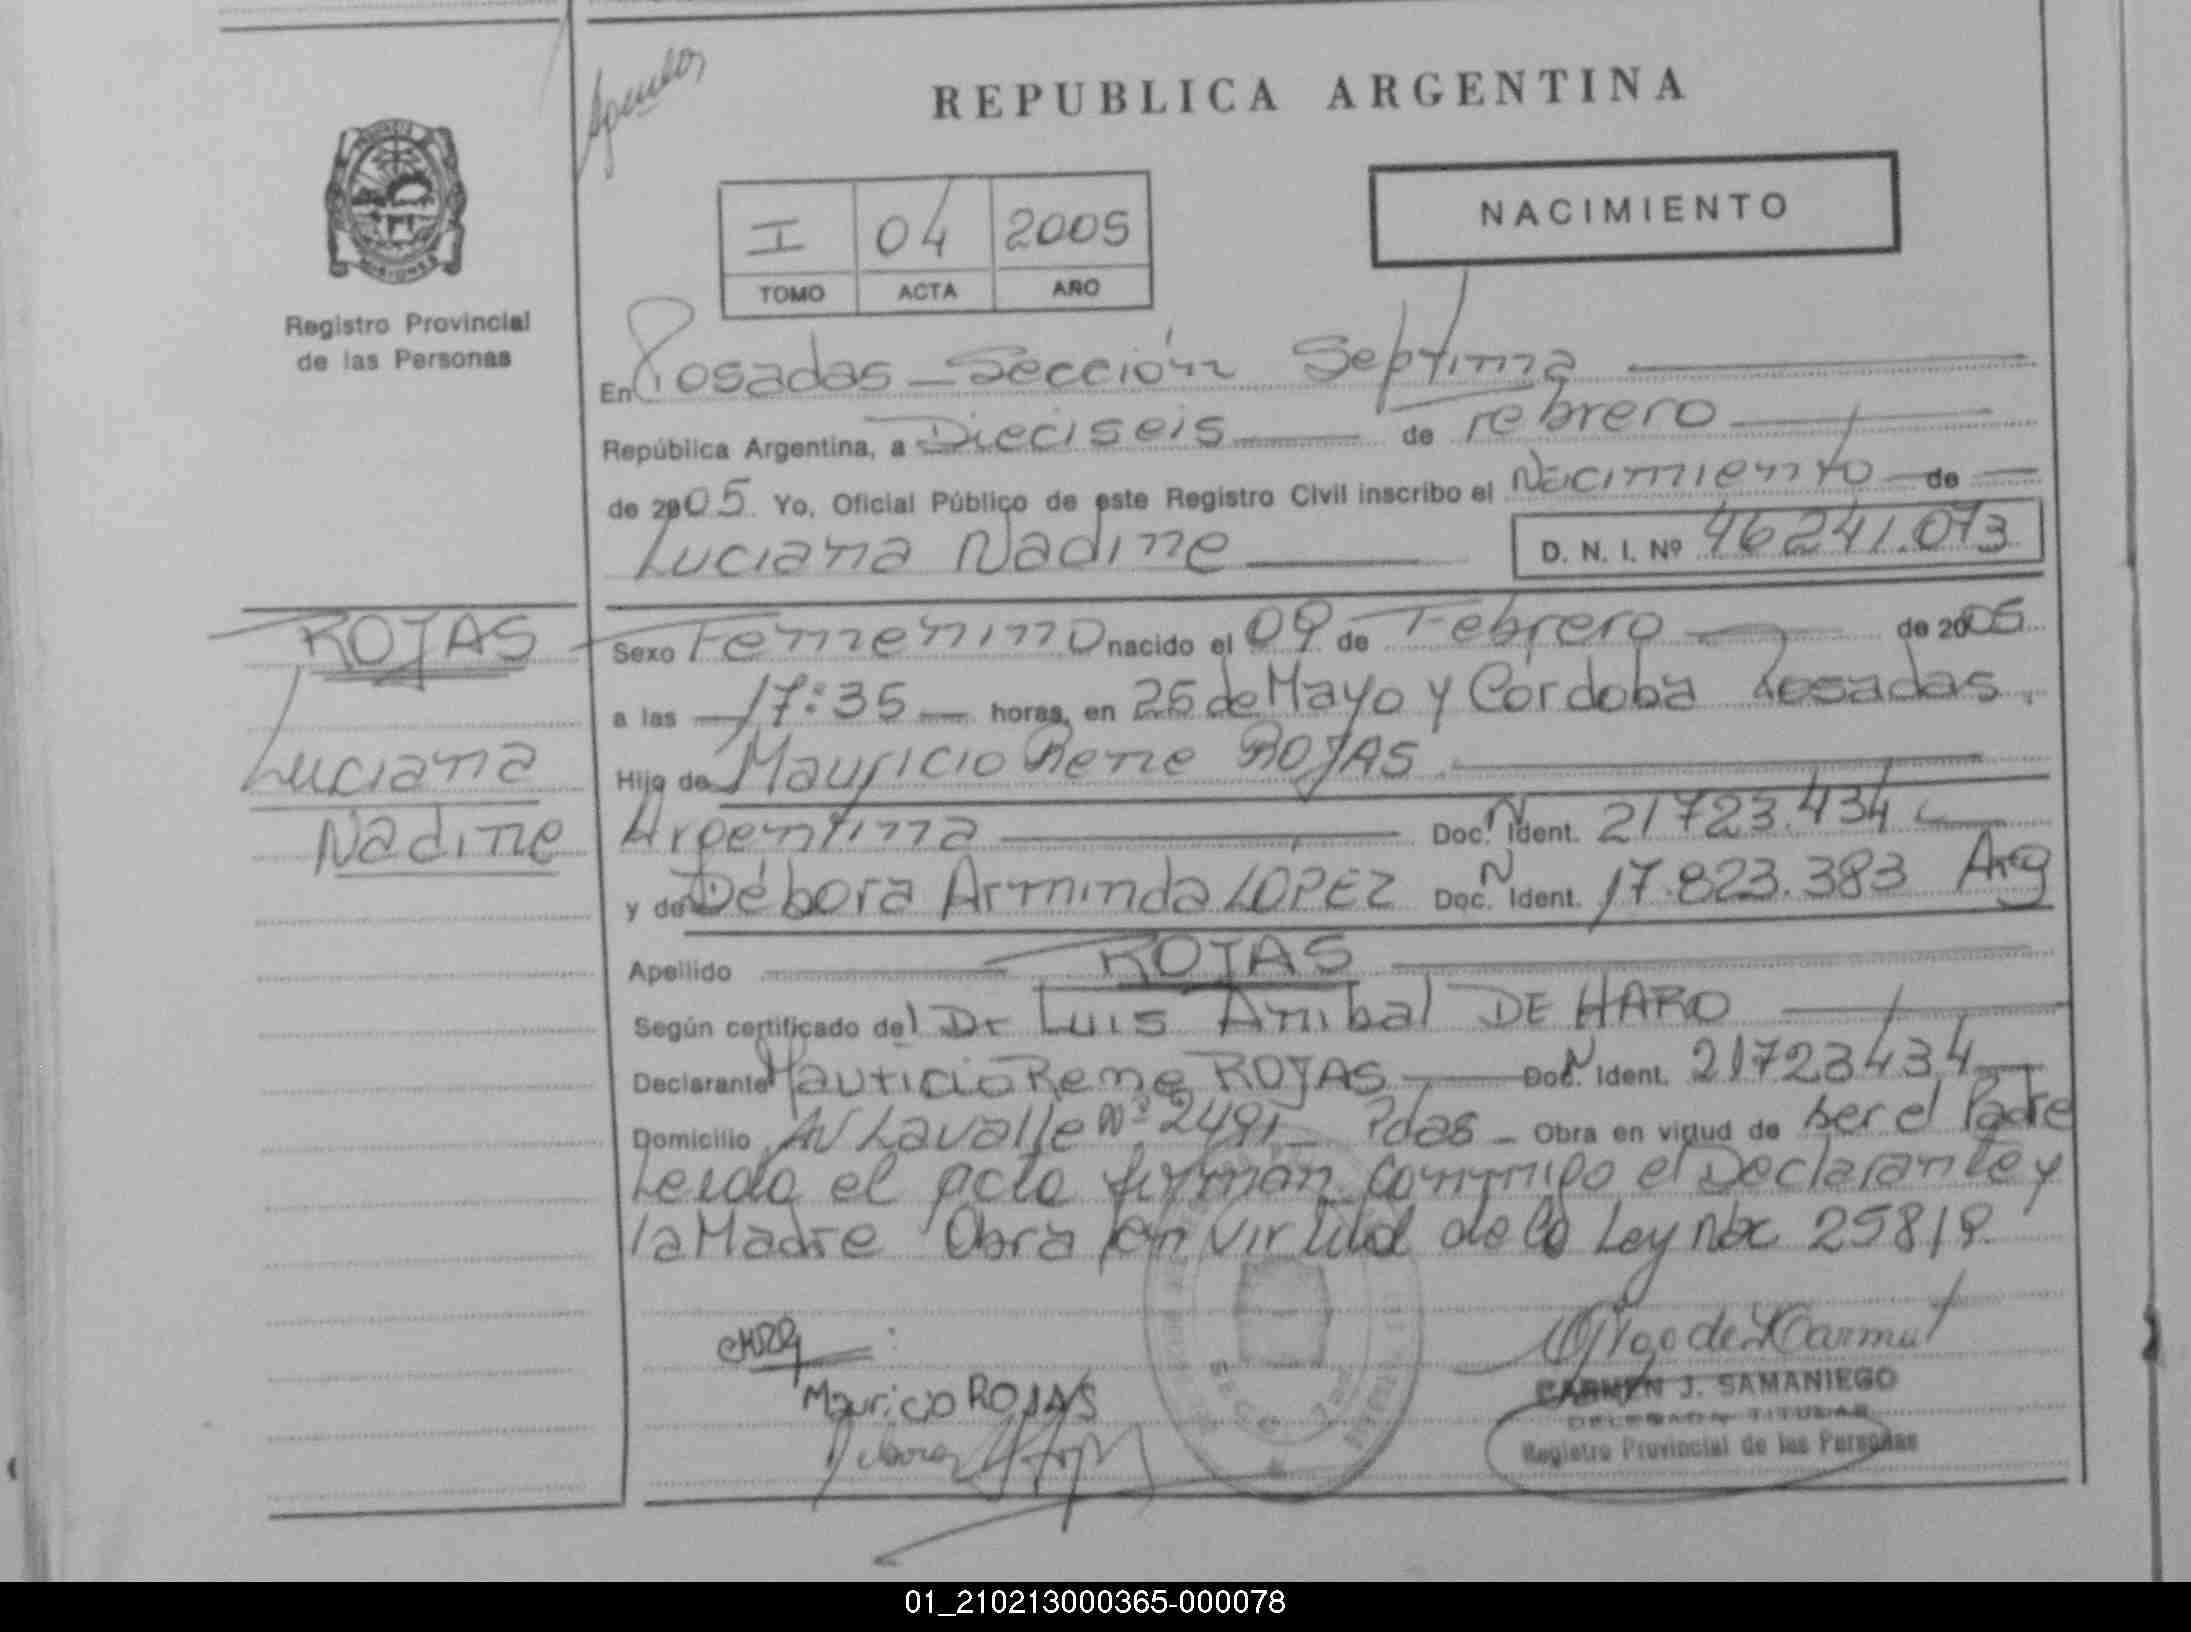 REPUBLICA ARGENTINA
MISIONES
Registro Provincial
de las Personas
I 04 2005
TOMO ACTA AÑO
NACIMIENTO
En Posadas - Sección Septima
República Argentina, a Dieciseis de Febrero
de 2005. Yo, Oficial Público de este Registro Civil inscribo el Nacimiento de
Luciana Nadine D. N. I. Nº 46241.073
ROJAS
Luciana
Nadine
Sexo Femenino nacido el 09 de Febrero de 2005
a las 17:35 horas, en 25 de Mayo y Córdoba Posadas.
Hijo de Mauricio Rene ROJAS
Argentina Doc. N Ident. 21723.434
y de Débora Arminda LOPEZ Doc. N Ident. 17.823.383 Arg
Apellido ROJAS
Según certificado del Dr Luis Anibal DE HARO
Declarante Mauricio Rene ROJAS Doc. N Ident. 21723434
Domicilio AV Lavalle Nº 2491 - Pdas - Obra en virtud de ser el Padre
Leida el acta firman conmigo el Declarante y
la Madre Obra en virtud de la Ley Nac 25819.
Mauricio ROJAS
CARMEN J. SAMANIEGO
DELEGADA TITULAR
Registro Provincial de las Personas
01_210213000365-000078